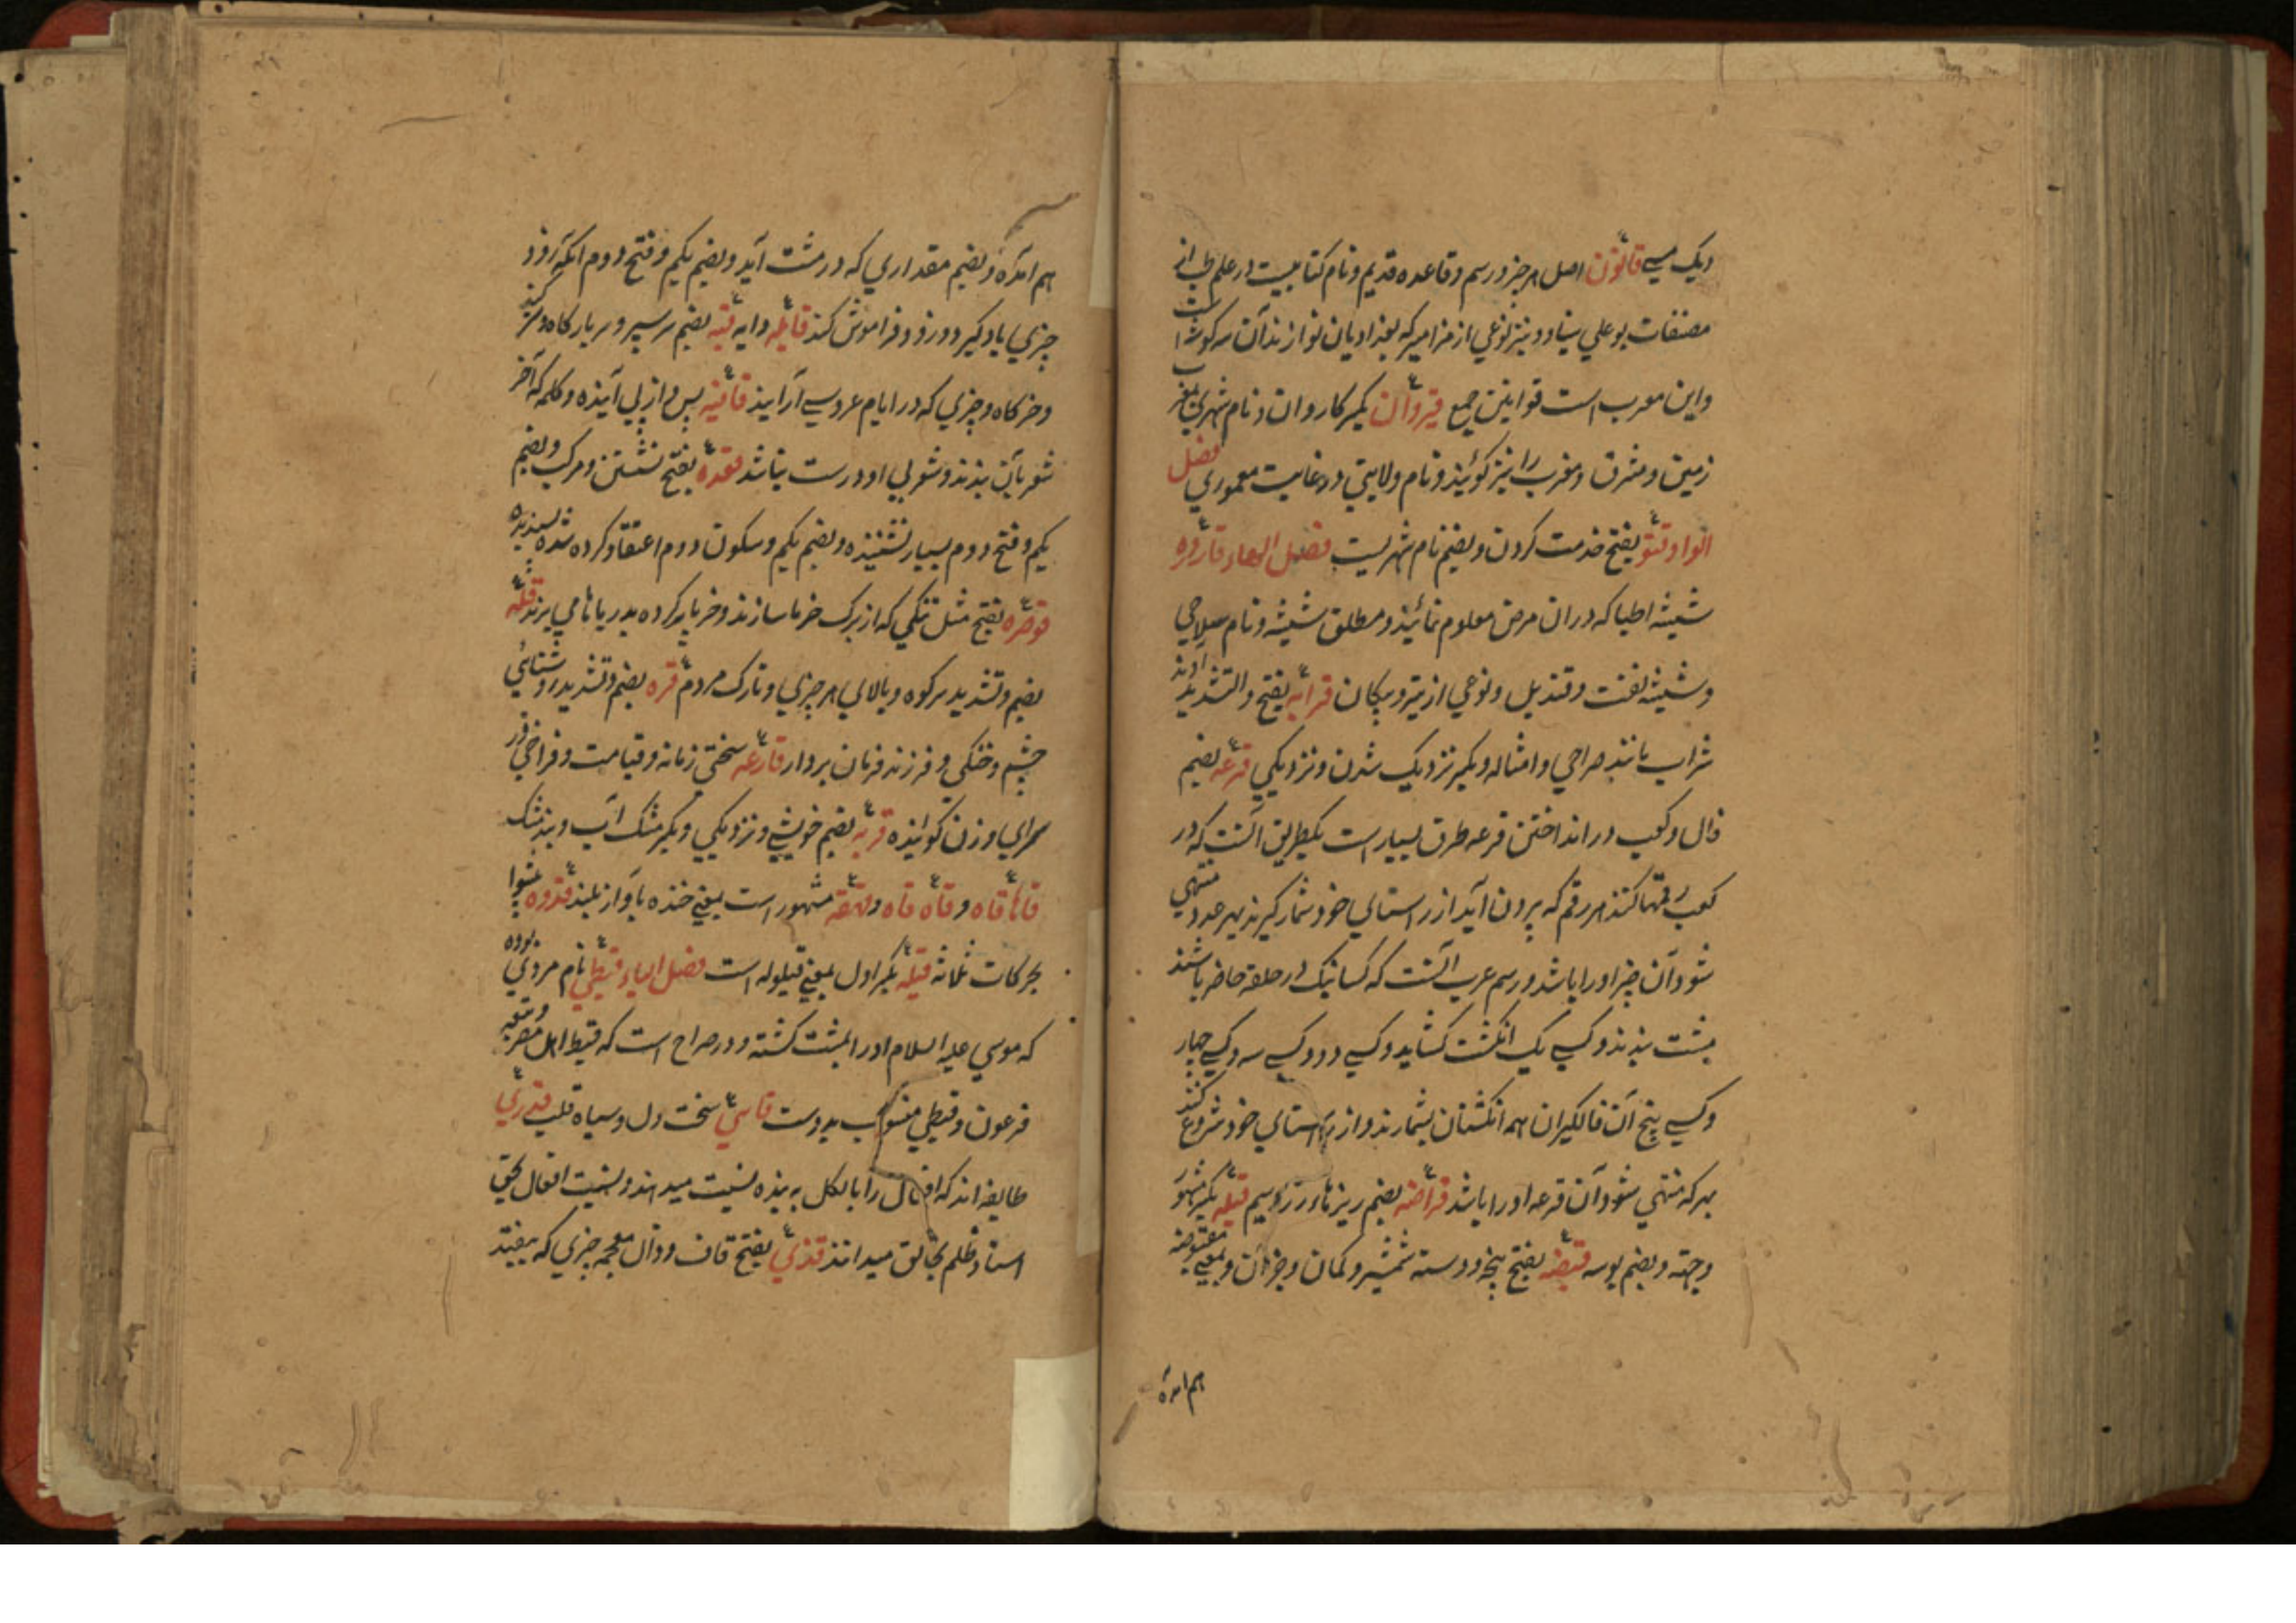 دیک مسی قانون اصل هر چیز و رسم و قاعده قدیم و نام کتابیست در علم طب از
مصنفات بوعلی سینا و نیز نوعی از مزامیر که بغدادیان نوازند آن سه گوشه است
واین معرب است قوانین جمع قیروان بکسر کاروان و نام شهری بمغرب
زمین و مشرق و مغرب را نیز گویند و نام ولایتی در غایت معموری فصل
الواو قتو بفتح خدمت کردن و بضم نام شهریست فصل الهاء قاروره
شیشه اطبا که در ان مرض معلوم نمایند و مطلق شیشه و نام سلاحی
و شیشه نفت و قندیل و نوعی از تیر و پیکان قرابه بفتح والتشدید آوند
شراب مانند صراحی و امثاله و بکسر نزدیک شدن و نزدیکی قرعه بضم
فال و کعب در انداختن قرعه طرق بسیار است یکطریق آنست که در
کعب رقمها کنند هر رقم که برون آید از راستای خود شمار گیرند بهر عدد منتهی
شود آن چیز اورا باشد و رسم عرب آنست که کسانیکه در حلقه حاضر باشند
مشت بندند و کسی یک انگشت کشاید و کسی دو و کسی سه و کسی چهار
و کسی پنج آن فالگیران همه انگشتان بشمارند و از راستای خود شروع کنند
بهر که منتهی شود آن قرعه اورا باشد قراضه بضم ریزهاء زر و سیم قبله بکسر مشهور
و جهته و بضم بوسه قبضه بفتح پنجه و دسته شمشیر و کمان و جز آن و بمعنی مقبوضه
هم امده
هم امده و بضم مقداری که در مشت آید و بضم یکم و فتح دوم آنکه زود
چیزی یاد گیرد و زود فراموش کند قابله دایه قبه بضم سر سپر و سر بارگاه و گنبد
و خرگاه و چیزی که در ایام عروسی آرایند قافیه پس و از پی آینده و کلمه که آخر
شعر بآن بندند و شعر بی او درست نباشد قعده بفتح نشستن و مرکب و بضم
یکم و فتح دوم بسیار نشیننده و بضم یکم و سکون دوم اعتقاد کرده شده پسندیده
قوصره بفتح مثل تنگی که از برک خرما سازند و خرما پر کرده بدریاها می برند قله
بضم و تشدید سر کوه و بالای هر چیزی و تارک مردم قره بضم و تشدید روشنائی
چشم و خنکی و فرزند فرمان بردار قارعه سختی زمانه و قیامت و فراخی در
سرای و زن کوبنده قربه بضم خویشی و نزدیکی و بکسر مشک آب و بند مشک
قاهٔ قاه و قاه قاه و قهقه مشهور است یعنی خنده بآواز بلند قدوه پیشوا
بحرکات ثلثه قیله بکسر اول بمعنی قیلوله است فصل الیاء قبطی نام مردی بوده
که موسی علیه السلام اورا بمشت کشته و در صراح است که قبط اهل مصر و تبعه
فرعون و قبطی منسوب بدوست قاسی سخت دل و سیاه قلب قدری
طایفه اند که افعال را بالکل به بنده نسبت میدهند و نسبت افعال بحق
اسناد ظلم بخالق میدانند قذی بفتح قاف و ذال معجمه چیزی که بیفتد